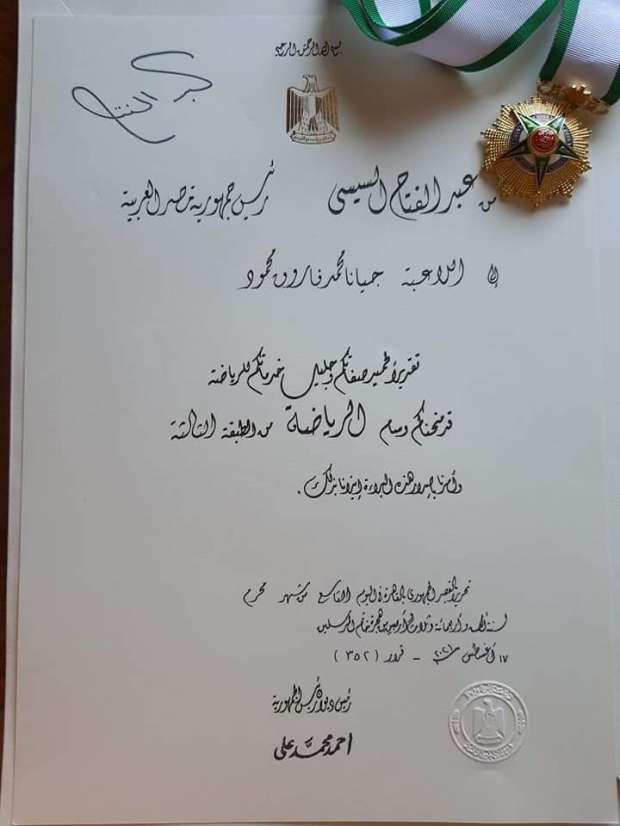 بسم الله الرحمن الرحيم
من عبد الفتاح السيسي رئيس جمهورية مصر العربية
إلى اللاعبة جيانا محمد فاروق محمود
تقديراً لحميد صفاتكم وجليل خدماتكم للرياضة
قد منحناكم وسام الرياضة من الطبقة الثالثة
وأمرنا بإصدار هذه البراءة إيذانا بذلك .
تحريراً بالقصر الجمهوري بالقاهرة في اليوم التاسع من شهر محرم
لسنة ألف وأربعمائة وثلاث وأربعين من هجرة خاتم المرسلين
١٧ أغسطس ٢٠٢١ - قرار ( ٣٥٢ )
رئيس ديوان رئيس الجمهورية
أحمد محمد علي